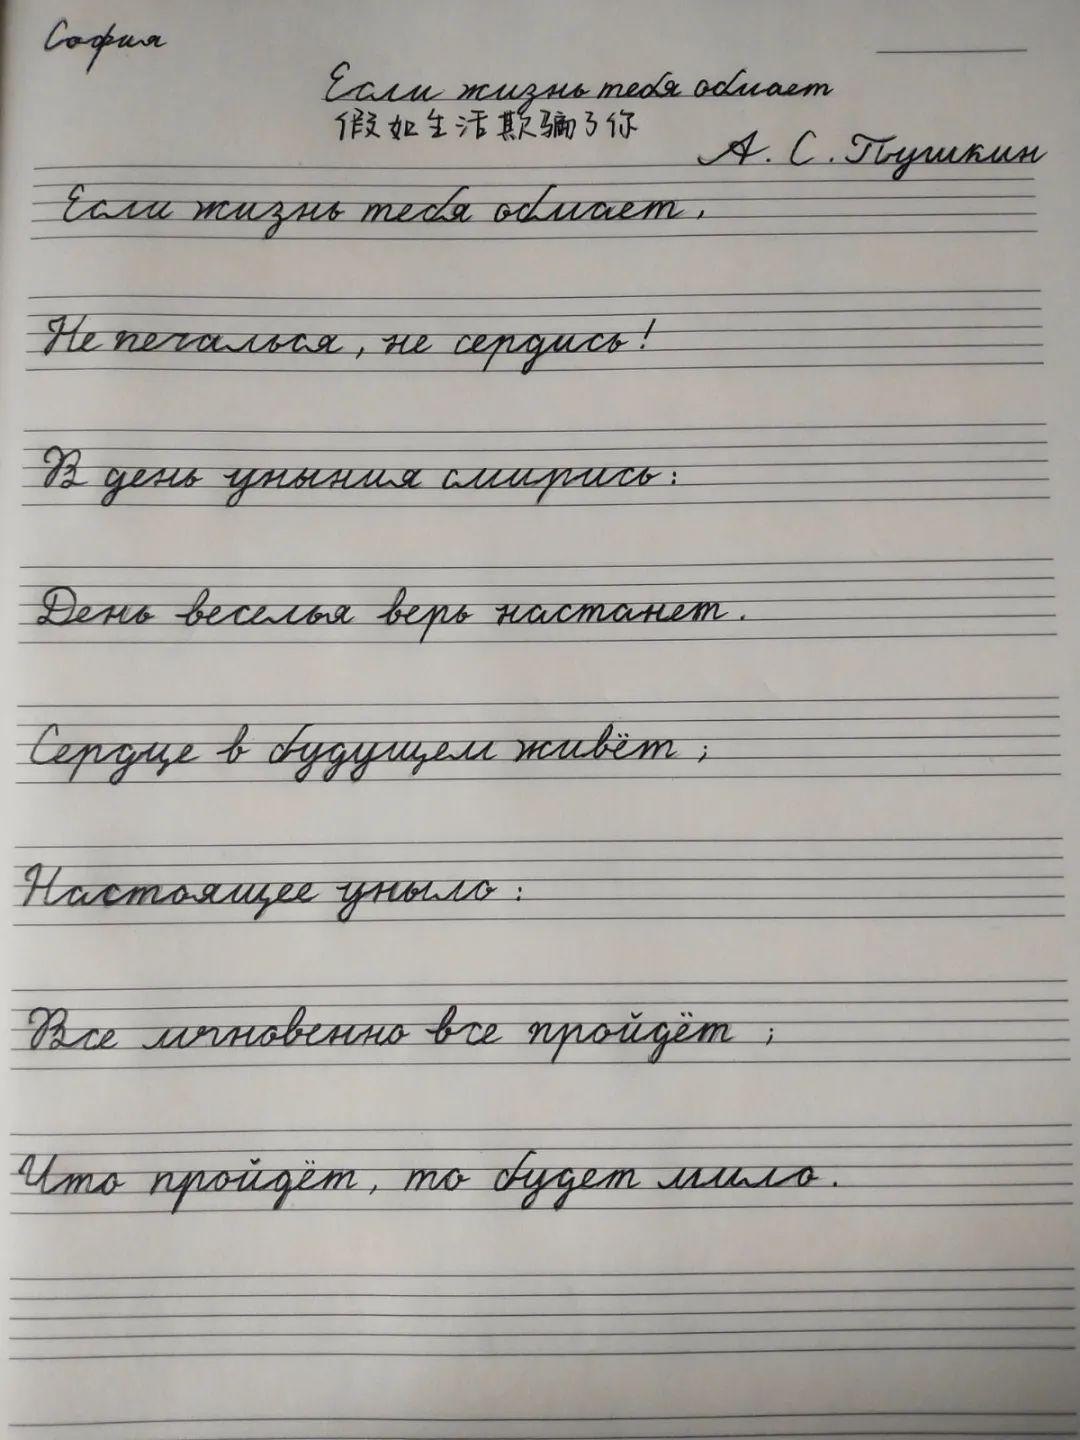 София
Если жизнь тебя обмает
假如生活欺骗了你
А. С. Пушкин
Если жизнь тебя обмает,
Не печалься, не сердись!
В день уныния смирись:
День веселья верь настанет.
Сердце в будущем живёт;
Настоящее уныло:
Все мгновенно все пройдёт;
Что пройдёт, то будет мило.